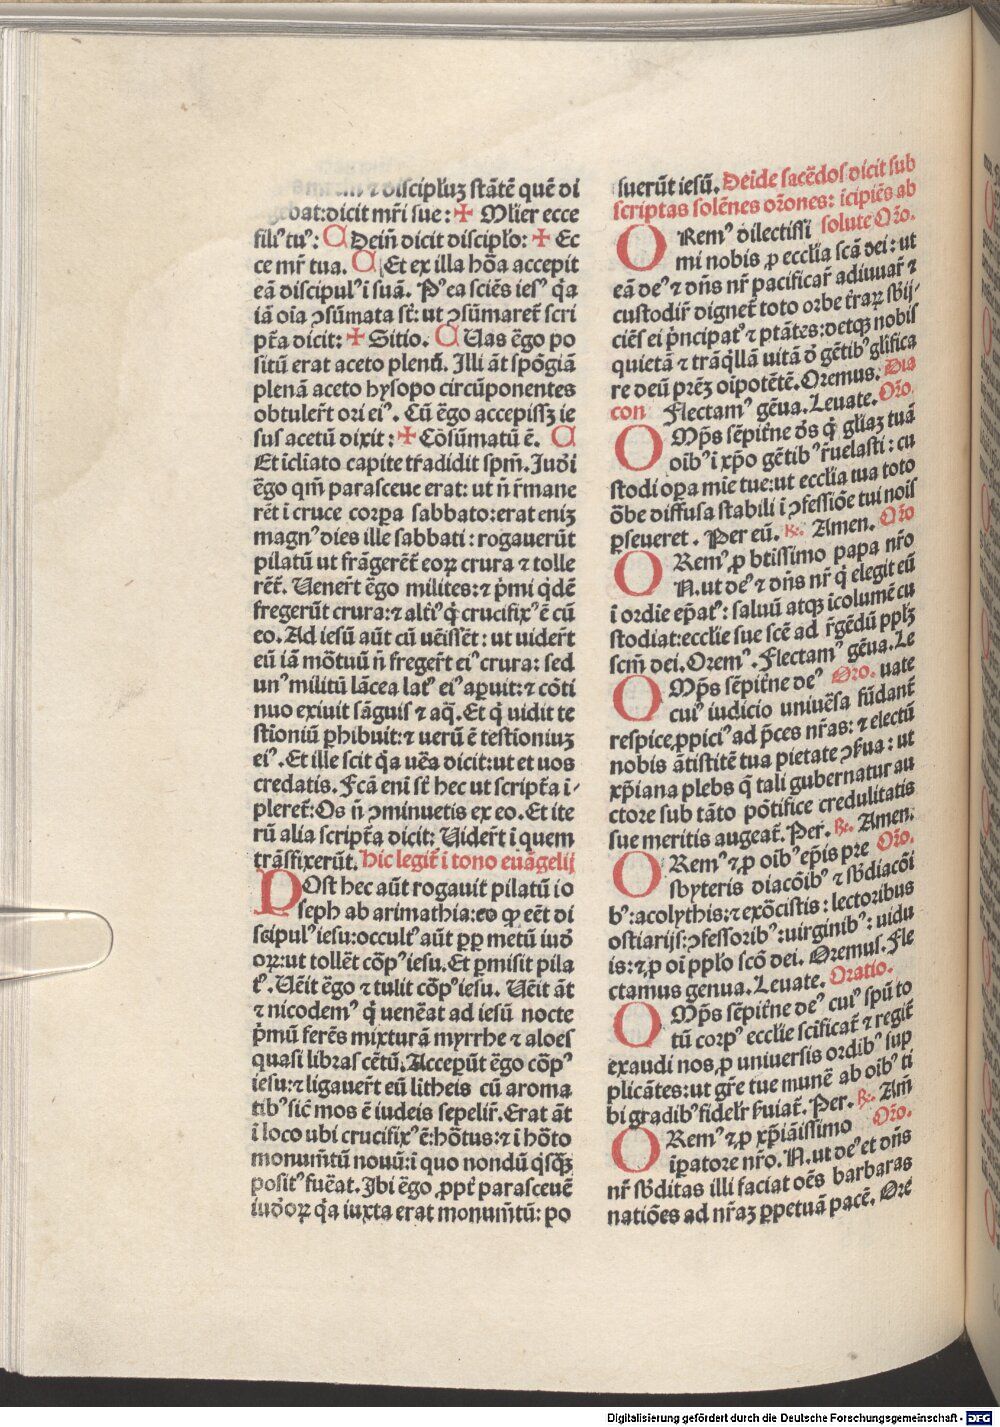 ⁊ discipl'uz stātē quē di
bat:dicit mr̄i sue:✠ Mlier ecce
filiꝰ tuꝰ: C Dein̄ dicit discipl'o: ✠ Ec
ce mr̄ tua. C Et ex illa hōa accepit
eā discipulꝰ ī suā. Pꝰ ea sciēs iesꝰ q̄a
iā oīa ꝯsūmata st̄: ut ꝯsūmaret̄ scri
pt̄a dicit: ✠ Sitio. C Uas ēgo po
sitū erat aceto plenū. Illi āt spōgiā
plenā aceto hysopo circūponentes
obtuler̄t ori eiꝰ. Cū ēgo accepissꝫ ie
sus acetū dixit: ✠ Cōsūmatū ē. C
Et īcliato capite tr̄adidit spm̄. Iudi
ēgo qm̄ parasceue erat: ut n̄ r̄mane
rēt ī cruce corpa sabbato:erat eniꝫ
magnꝰ dies ille sabbati: rogauerūt
pilatū ut frāgerēt̄ eoꝝ crura ⁊ tolle
rēt̄. Uener̄t ēgo milites:⁊ p̄mi qdē
fregerūt crura:⁊ alt̄iꝰ q̄ crucifixꝰ ē cū
eo. Ad iesū aūt cū uēissēt: ut uider̄t
eū iā mōtuū n̄ freger̄t eiꝰ crura: sed
unꝰ militū lācea latꝰ eiꝰ apuit:⁊ cōti
nuo exiuit sāguis ⁊ aq̄. Et q̄ uidit te
stioniū phibuit:⁊ uerū ē testioniuꝫ
eiꝰ. Et ille scit q̄a uēa dicit:ut et uos
credatis. Fcā enī st̄ hec ut script̄a ī-
pleret̄: Os n̄ ꝯminuetis ex eo. Et ite
rū alia script̄a dicit: Uider̄t ī quem
trāsfixerūt. hic legit̄ ī tono euāgelij
POst hec aūt rogauit pilatū io
seph ab arimathia:eo qꝫ eēt di
scipulꝰ iesu:occultꝰ aūt ꝓp metū iud
oꝝ:ut tollēt cōpꝰ iesu. Et pmisit pila
tꝰ. Uēit ēgo ⁊ tulit cōpꝰ iesu. Uēit āt
⁊ nicodemꝰ q̄ uenēat ad iesū nocte
p̄mū ferēs mixturā myrrhe ⁊ aloes
quasi libras cētū. Accepūt ēgo cōpꝰ
iesu:⁊ ligauer̄t eū litheis cū aroma
tibꝰ sic̄ mos ē iudeis sepelir̄. Erat āt
ī loco ubi crucifixꝰ ē:hōtus:⁊ ī hōto
monum̄tū nouū:ī quo nondū q̄sqꝫ
positꝰ fuēat. Ibi ēgo ꝓpt̄ parasceuē
iudoꝝ q̄a iuxta erat monum̄tū: po
suerūt iesū. Deīde sacēdos dicit sub
scriptas solēnes or̄ones: īcipiēs ab
ORemꝰ dilectissi solute Or̄o.
mi nobis ꝓ eccl'ia scā dei: ut
eā deꝰ ⁊ dn̄s nr̄ pacificar̄ adiuuar̄ ⁊
custodir̄ dignet̄ toto orbe tr̄aꝝ sb̄ij-
ciēs ei p̄ncipatꝰ ⁊ ptātes:detqꝫ nobis
quietā ⁊ trāqllā uitā d' gētibꝰ gl'ifica
re deū prēꝫ oīpotētē. Oremus. Dia
con Flectamꝰ gēua. Leuate. Or̄o.
OMp̄s sēpit̄ne ds̄ q̄ gl'iaꝫ tuā
oībꝰ ī xp̄o gētibꝰ r̄uelasti: cu
stodi opa mīe tue:ut eccl'ia tua toto
ōbe diffusa stabili ī ꝯfessiōe tui noīs
pseueret. Per eū. ℟. Amen. Or̄o
ORemꝰ ꝓ btīssimo papa nr̄o
N. ut deꝰ ⁊ dn̄s nr̄ q̄ elegit eū
ī ordīe ep̄atꝰ: saluū atqꝫ īcolumē cu
stodiat:eccl'ie sue scē ad r̄gēdū pplꝫ
scm̄ dei. Oremꝰ. Flectamꝰ gēua. Le
OMp̄s sēpit̄ne deꝰ Oro. uate
cuiꝰ iudicio uniuēsa fūdant̄
respice,ꝓpiciꝰ ad p̄ces nr̄as: ⁊ electū
nobis ātistitē tua pietate ꝯfua: ut
xp̄iana plebs q̄ tali gubernatur au
ctore sub tāto pōtifice credulitatis
sue meritis augeat̄. Per. ℟. Amen.
ORemꝰ ⁊ ꝓ oībꝰ ep̄is pre Or̄o.
sbyteris diacōibꝰ ⁊ sb̄diacōi
bꝰ:acolythis:⁊ exōcistis: lectoribus
ostiarijs:ꝯfessoribꝰ:uirginibꝰ: uidu
is:⁊ ꝓ oī ppl'o scō dei. Oremus. Fle
ctamus genua. Leuate. Oratio.
OMp̄s sēpit̄ne deꝰ cuiꝰ spū to
tū corpꝰ eccl'ie scīficat̄ ⁊ regit̄
exaudi nos,ꝓ uniuersis ordībꝰ sup
plicātes:ut gr̄e tue munē ab oībꝰ ti
bi gradibꝰ fidelr̄ s̄uiat̄. Per. ℟. Am̄
ORemꝰ ⁊ ꝓ xp̄iāissimo Or̄o.
īpatore nr̄o. N. ut deꝰ et dn̄s
nr̄ sb̄ditas illi faciat oēs barbaras
natiōes ad nr̄aꝫ ppetuā pacē. Ore
Digitalisierung gefördert durch die Deutsche Forschungsgemeinschaft - DFG